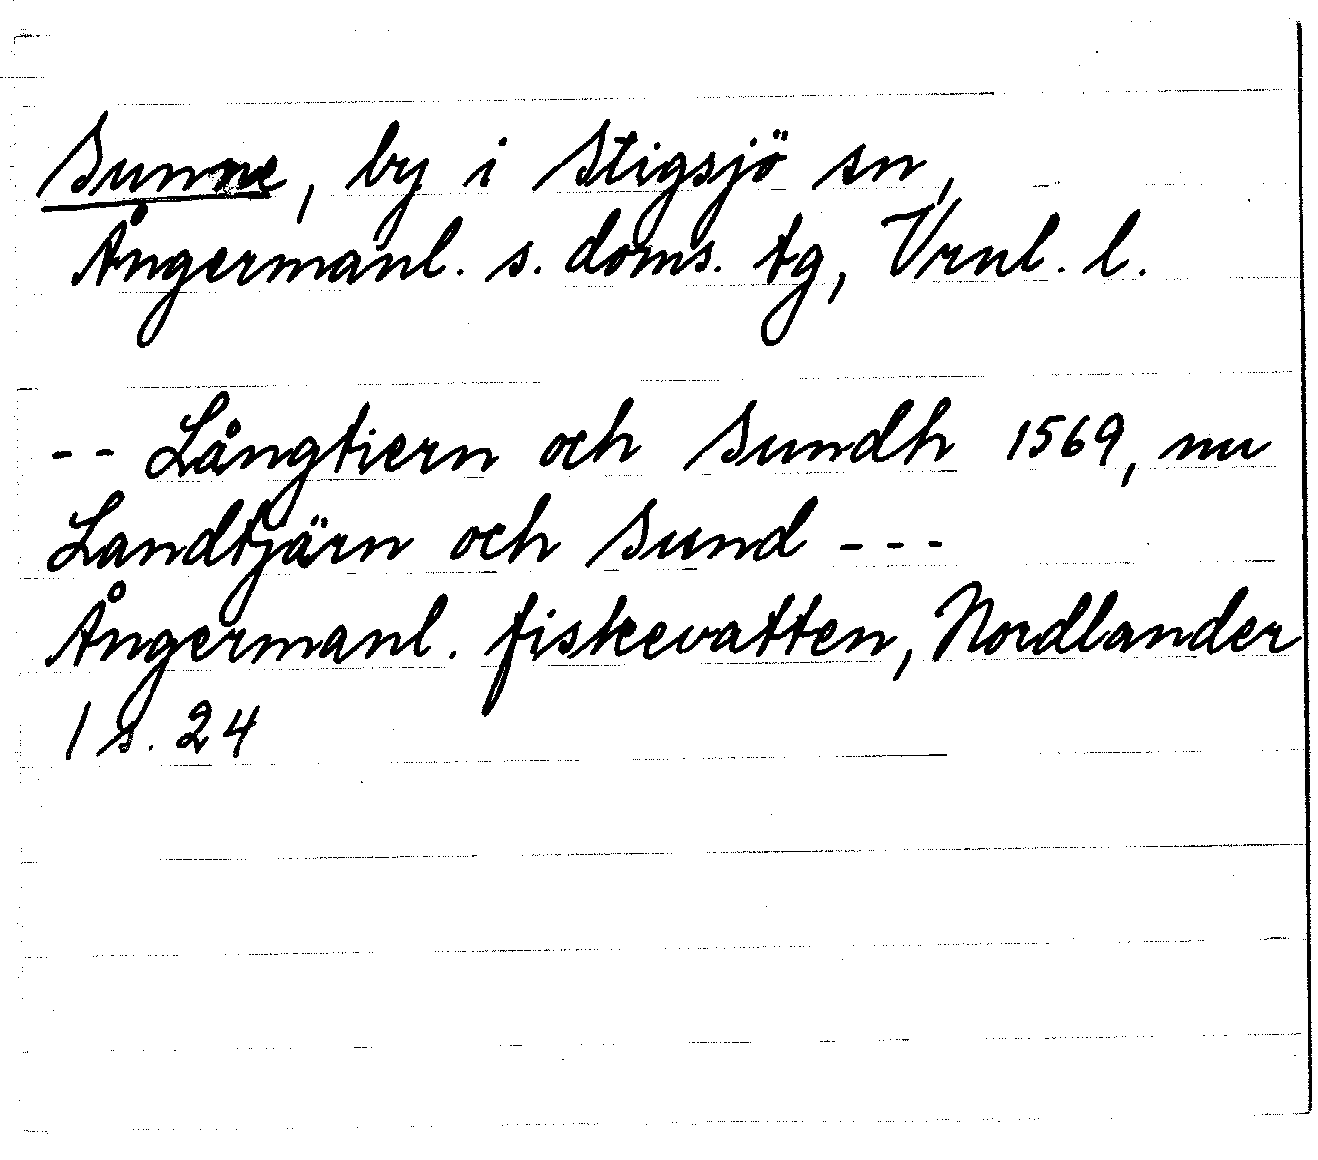 Sunne, by i Stigsjö sn,
Ångermanl. s. doms. tg, Vrnl. l.
-- Långtiern och Sundh 1569, nu
Landtjärn och Sund ---
Ångermanl. fiskevatten, Nordlander
1 s. 24